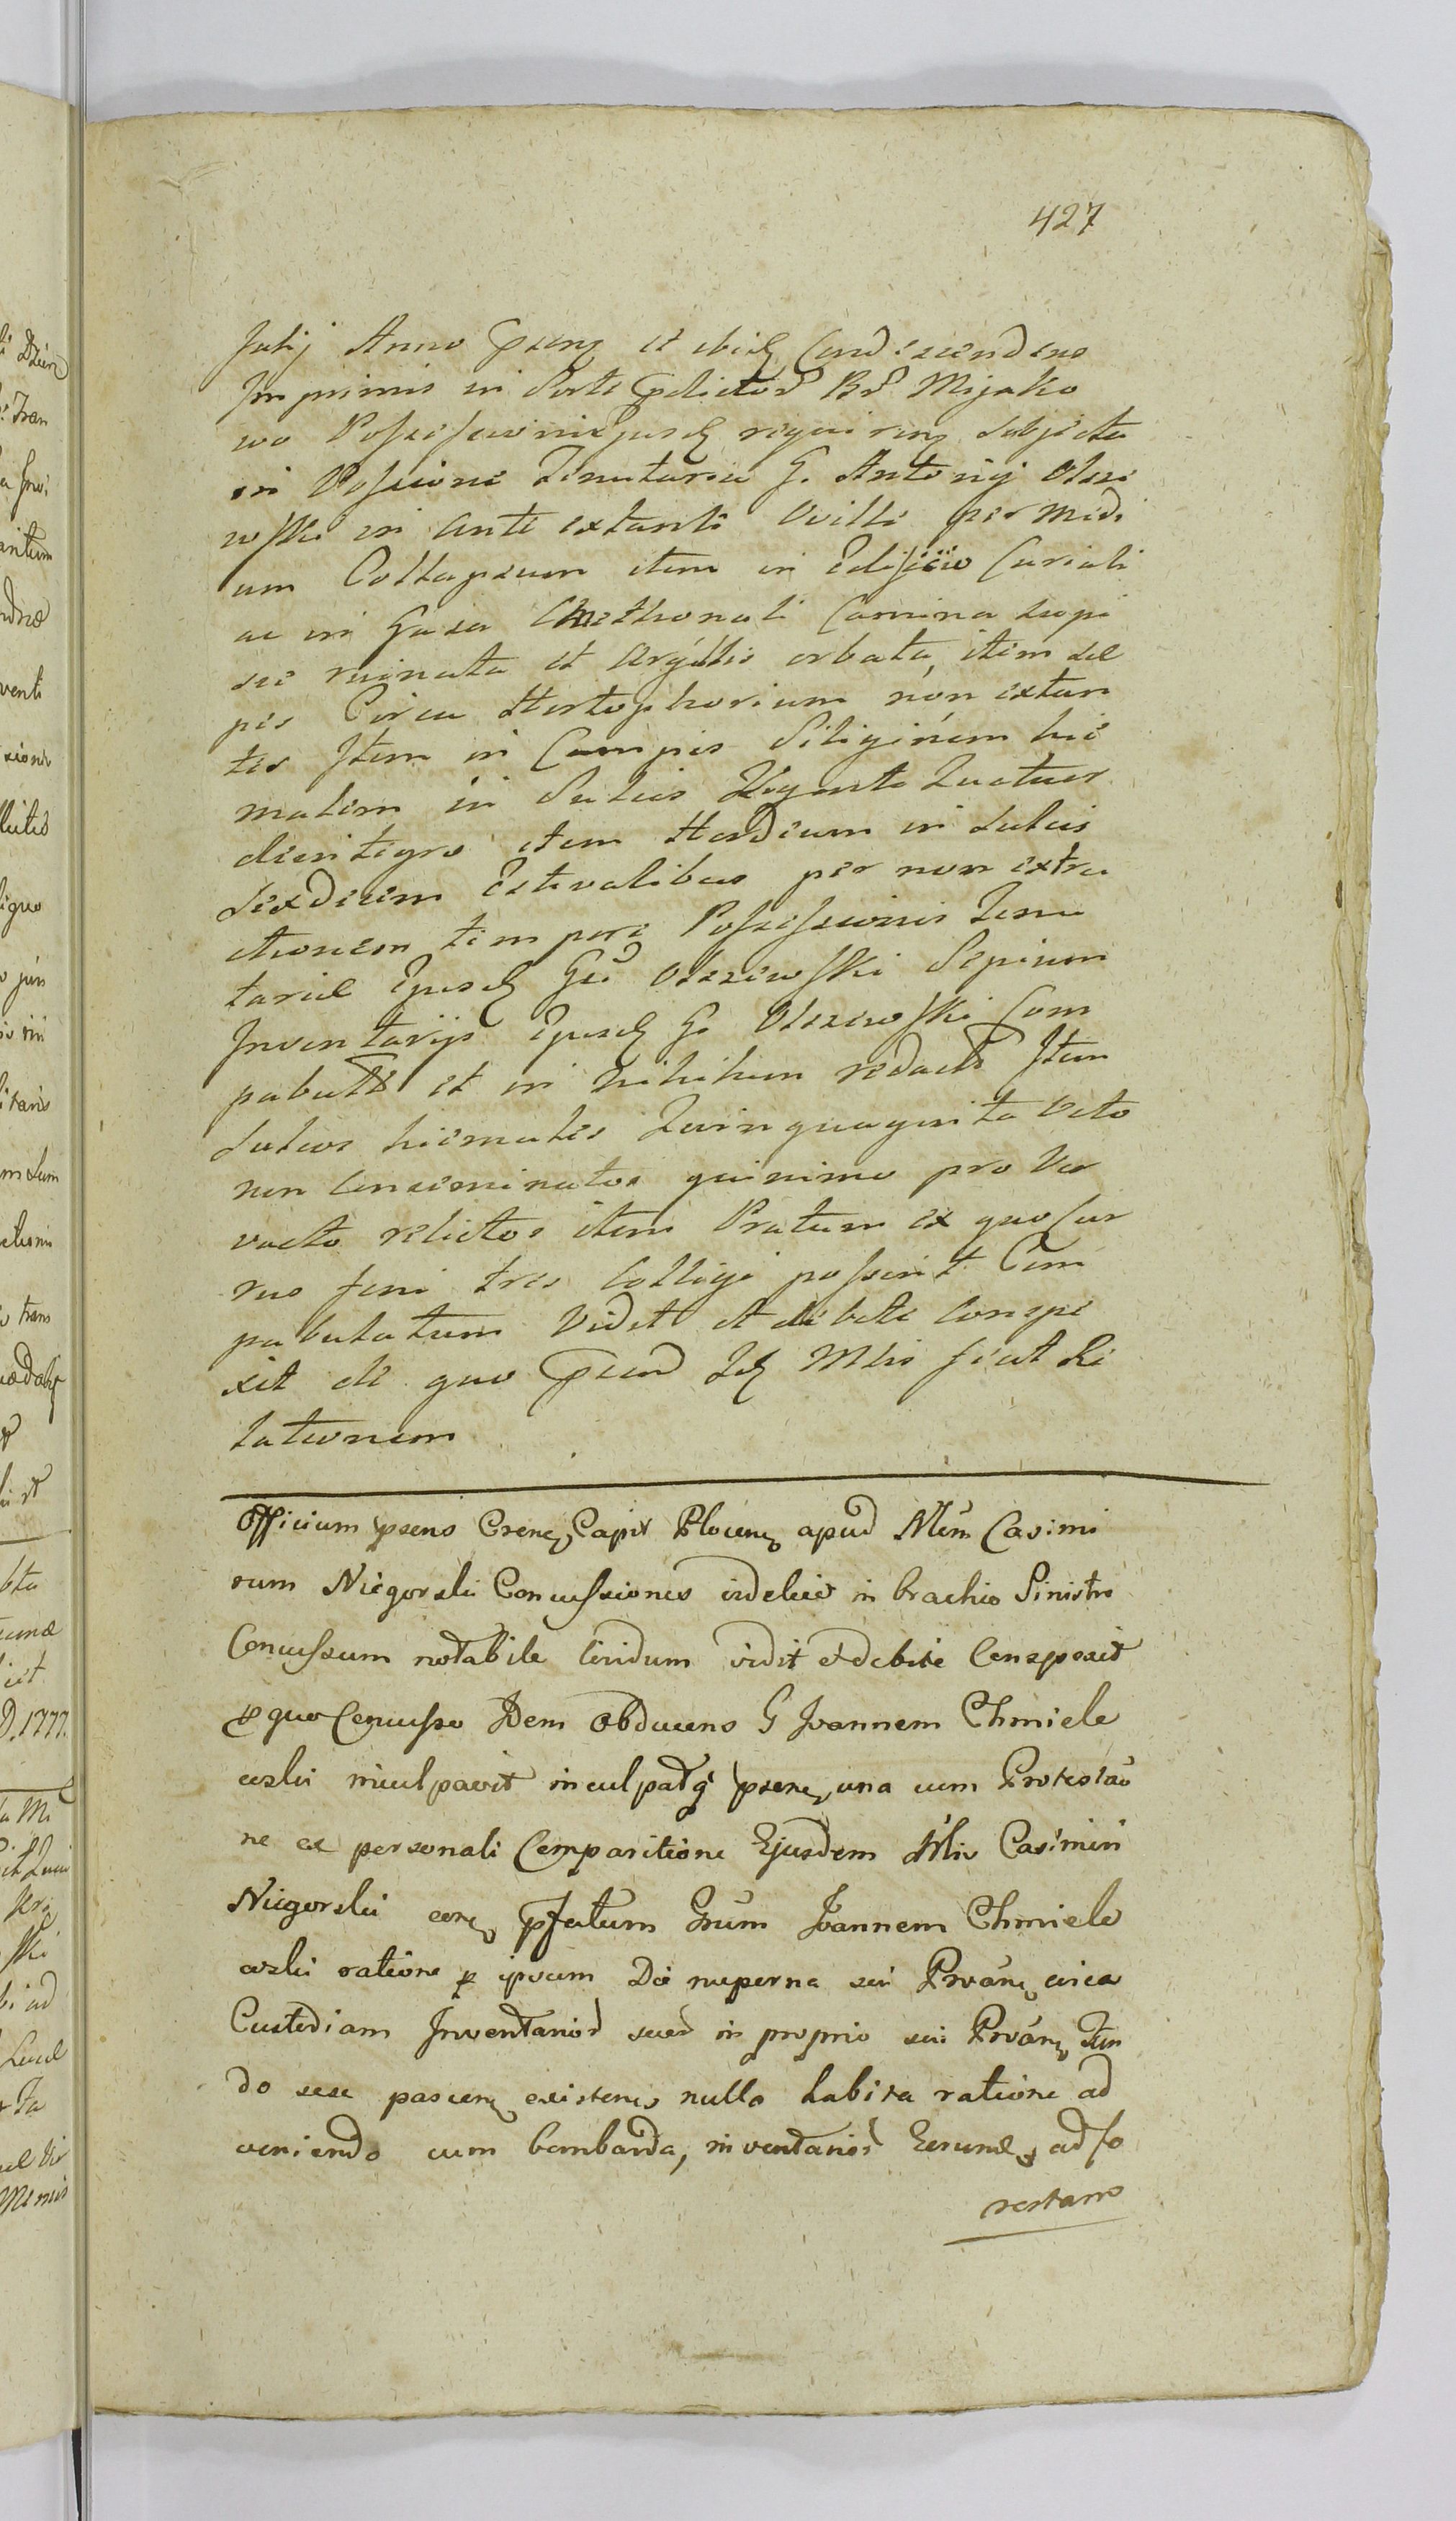 427
Julij Anno psens et ibid Condescendens
Imprimis in Sorte pdictor Br Mijako
wo Possessionis Ejusd requirens Subjecta
in Possione Tenutaria G. Antonij Olsze
wski in ante extanti Ovilli per medi
um Collapsum item in Edificio Curiali
ac in Gasa Cmethonali Camina
ruinata et Argillis orbata, item Se
pes Circa Hortophorium non extan
tes Item in Campis Siliginem hie
malem in Sulcis Viginti Quatuor
disintegro item Hordeum in Sulcis
Sexdecim Estivalibus per non extru
ctionem tempore Possessionis Tenu
tariae Ejusd Gsi Olszewski Sepium
Inventarijs Ejusd G. Olszewski Com
pabult et in Nihilum redacts Item
Sulcos hiemales Quinquaginta Octo
non Conseminatos quinimo pro Ver
vacto relictos item Pratum ex quo Cur
rus feni tres Colligi possint Com
pabulatum Vidit et debite Conspe
xit de quo psend Id Mlis fecit Re
lationem
Officium psens Crense Capit Plocens apud Nlem Casimi
rum Niegorski Concussiones videlicet in brachio Sinistro
Concussum notabile lividum vidit et debite Conspexit
pro quo Concusso Idem Obducens G Joannem Chmiele
wski inculpavit inculpatq psens una cum Protestao
ne ex personali Comparitione Ejusdem Nlis Casimiri
Niegorski cora pfatum Grum Joannem Chmiele
wski ratione p ipsum Die nuperna sui Proans circa
Custodiam Inventarior suor in proprio sui Proans Fun
do sese pascens existens nulla habita ratione ad
veniendo cum bombarda, inventarior Eorund ad fo
restam